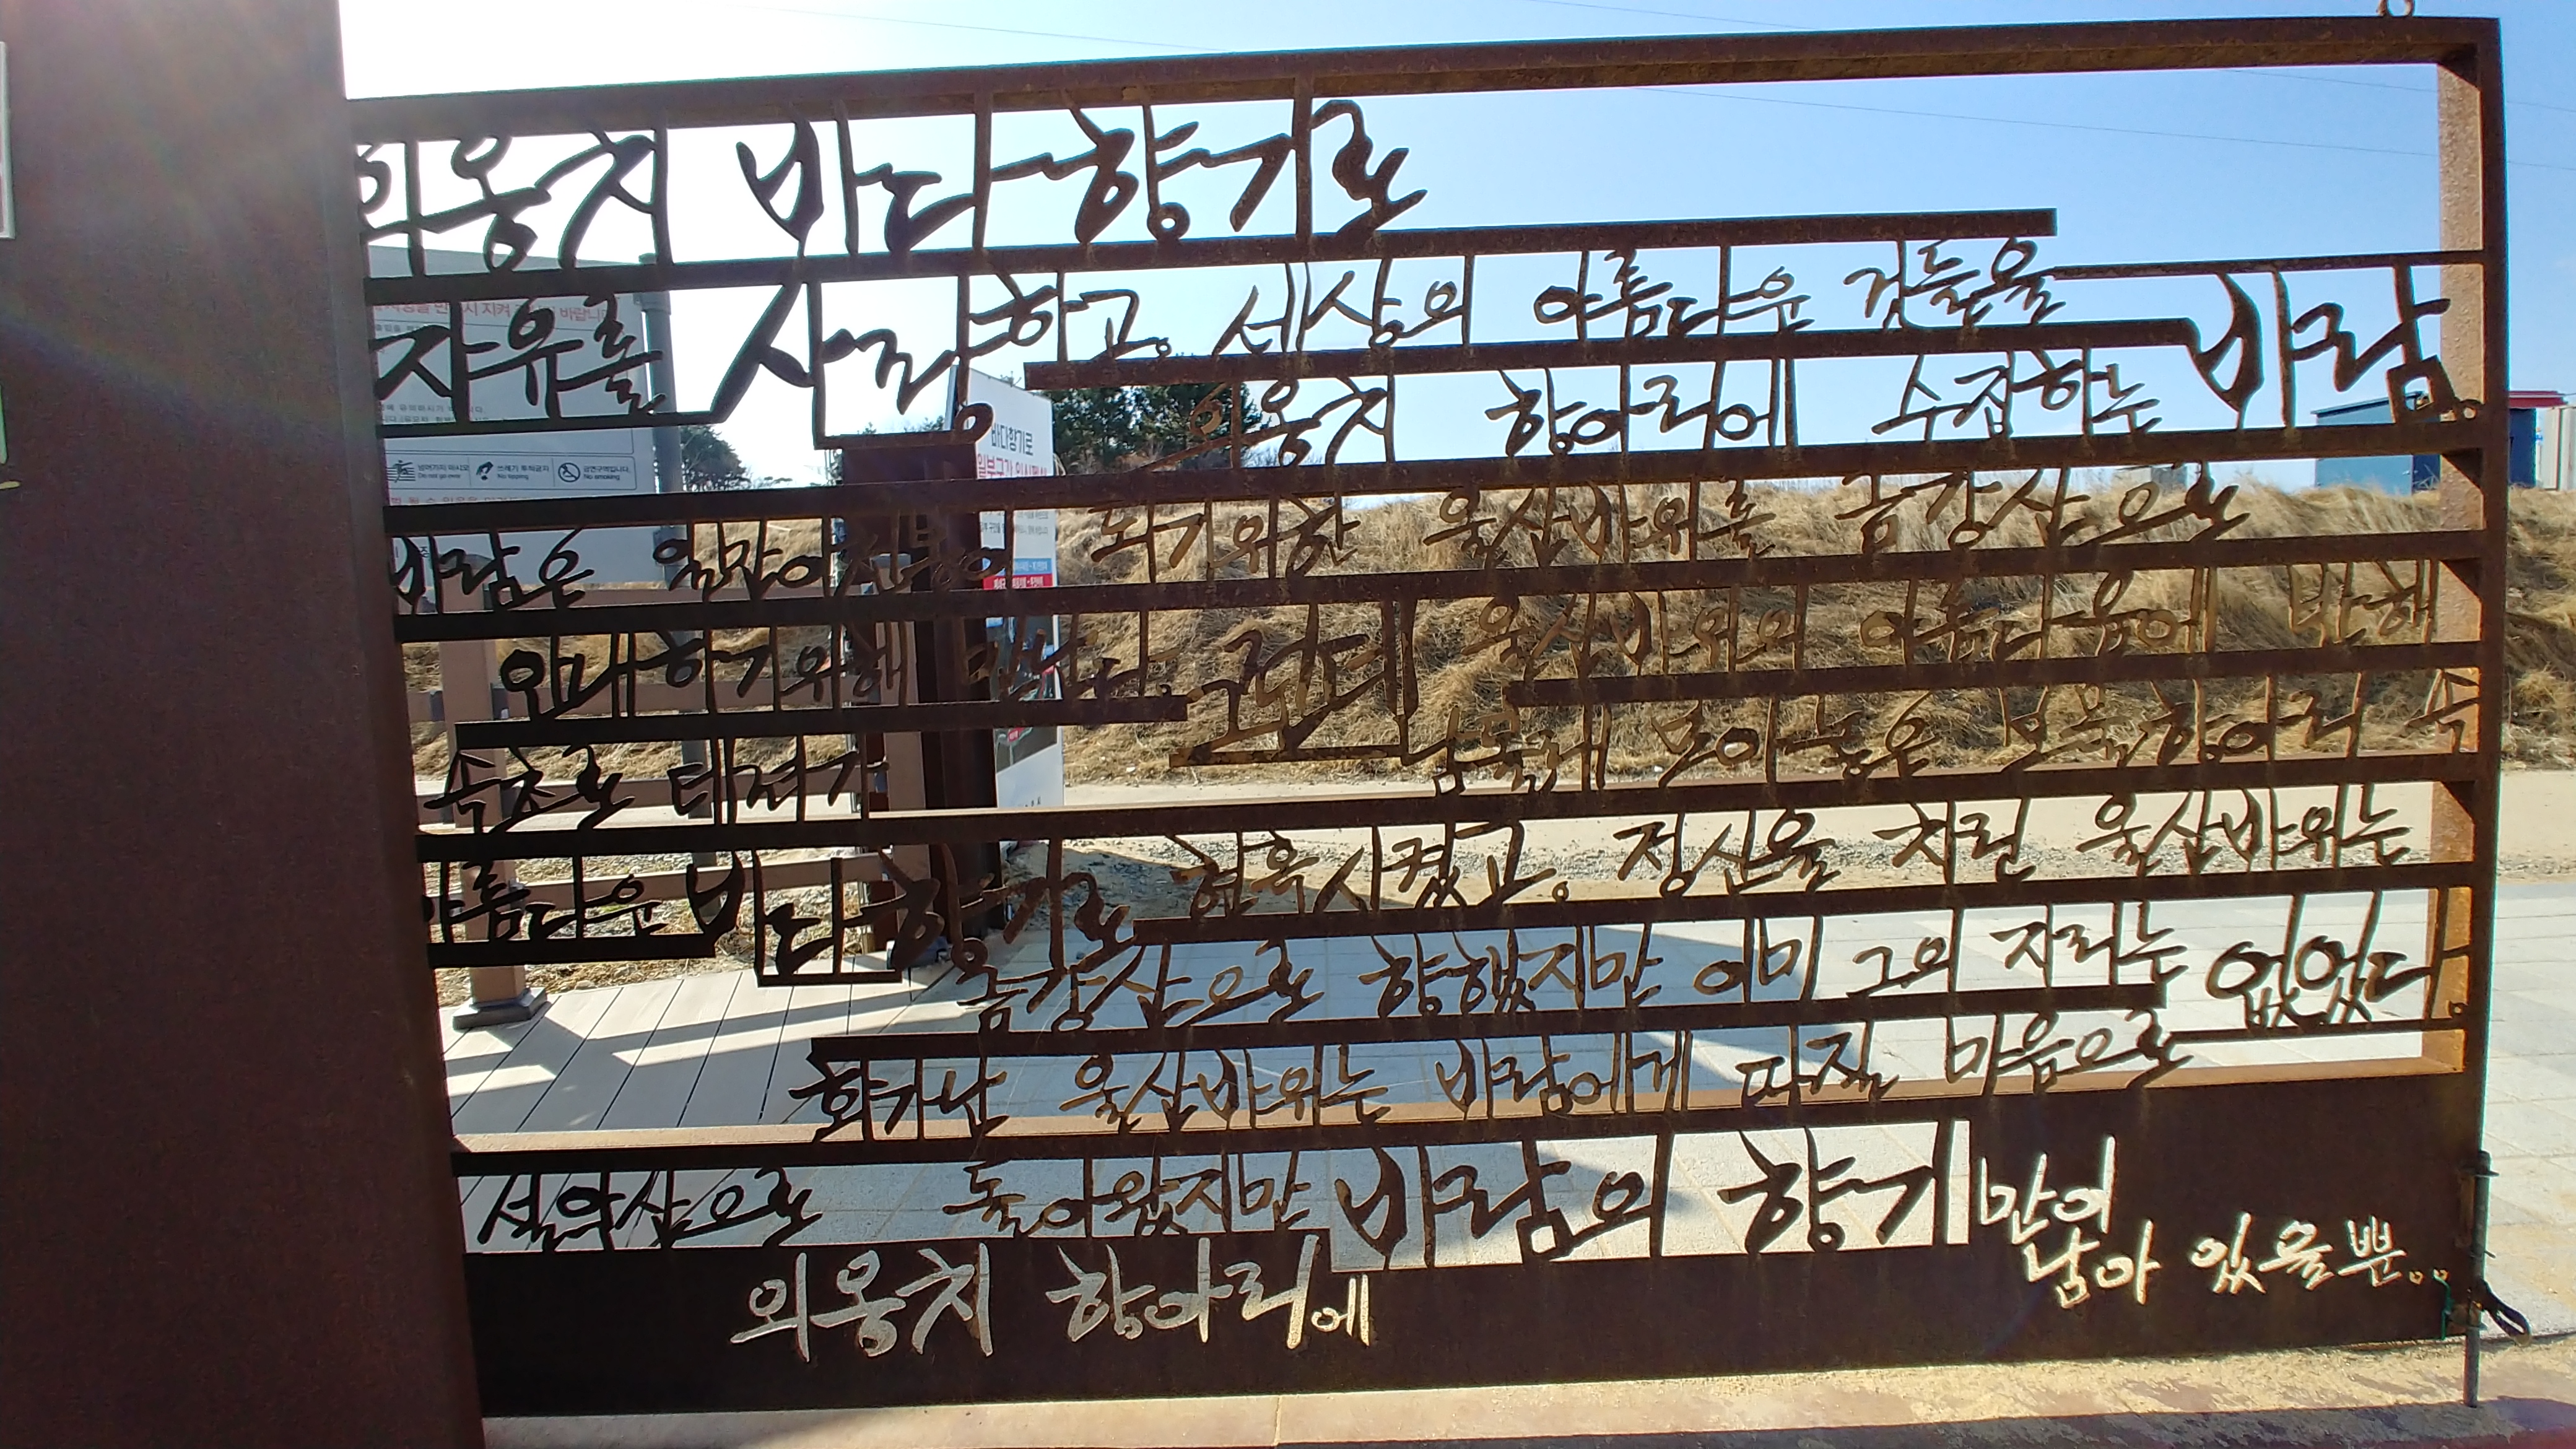 외옹치 바다향기로
자유를 사랑하고, 세상의 아름다운 것들을
외옹치 항아리에 수집하는 바람.
바람은 일만이천봉이 되기위한 울산바위를 금강산으로
안내하기위해 만난다. 그런데 울산바위의 아름다움에 반해
속초로 데려가 남몰래 모아놓은 보물항아리 속
아름다운 바다향기로 현혹시켰고. 정신을 차린 울산바위는
금강산으로 향했지만 이미 그의 자리는 없었다.
화가난 울산바위는 바람에게 따질 마음으로
설악산으로 돌아왔지만 바람의 향기만이
외옹치 항아리에 남아 있을뿐..
바다향기로
넘어가지 마시오
Do not go over
쓰레기 투척금지
No tipping
금연구역입니다.
No smoking